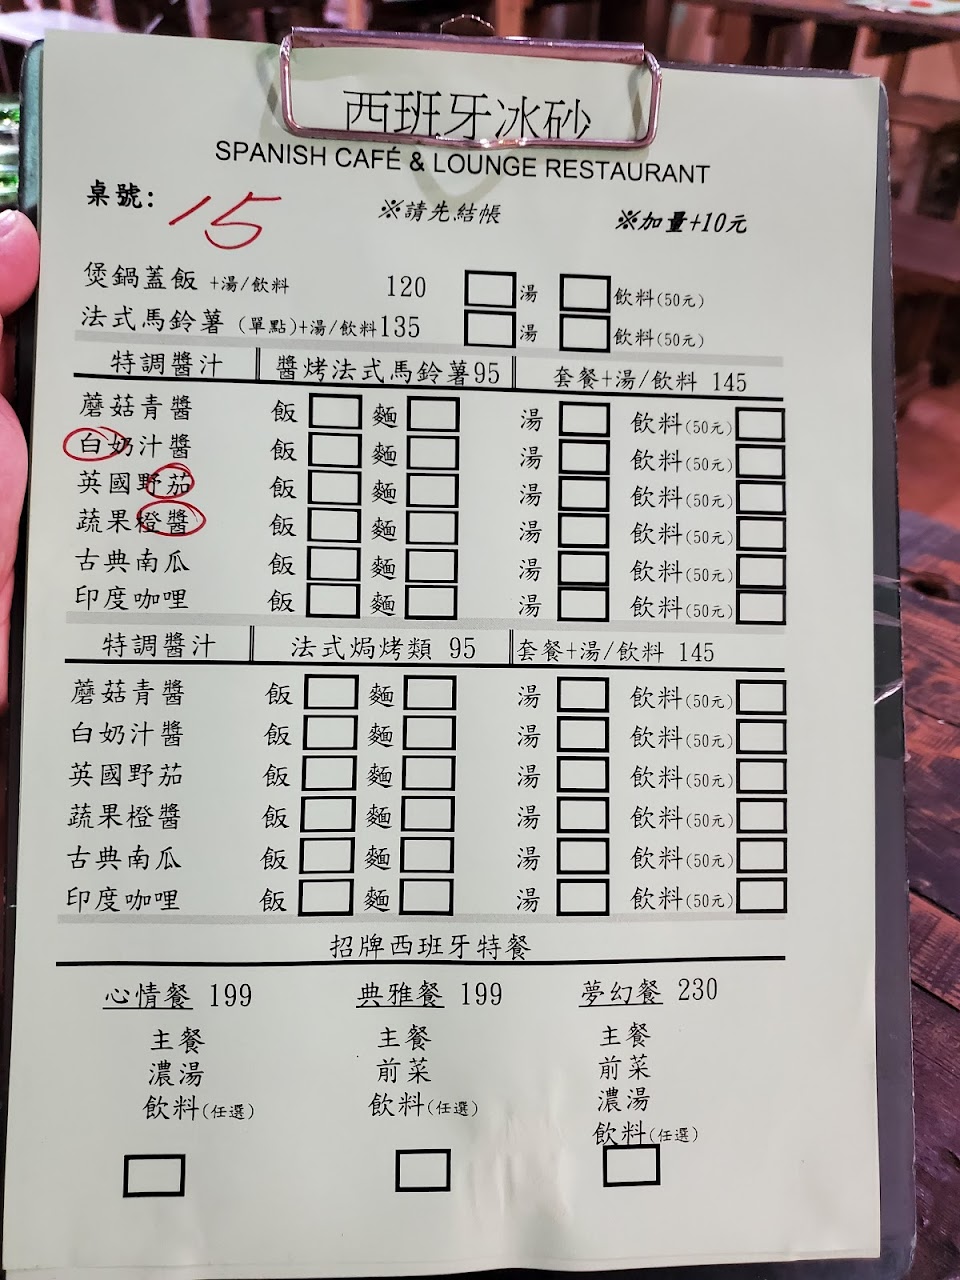 西班牙冰砂
SPANISH CAFÉ & LOUNGE RESTAURANT
桌號: 15 ※請先結帳 ※加量+10元
煲鍋蓋飯 +湯/飲料 120 湯 飲料(50元)
法式馬鈴薯 (單點)+湯/飲料135 湯 飲料(50元)
特調醬汁 醬烤法式馬鈴薯95 套餐+湯/飲料 145
蘑菇青醬 飯 麵 湯 飲料(50元)
白奶汁醬 飯 麵 湯 飲料(50元)
英國野茄 飯 麵 湯 飲料(50元)
蔬果橙醬 飯 麵 湯 飲料(50元)
古典南瓜 飯 麵 湯 飲料(50元)
印度咖哩 飯 麵 湯 飲料(50元)
特調醬汁 法式焗烤類 95 套餐+湯/飲料 145
蘑菇青醬 飯 麵 湯 飲料(50元)
白奶汁醬 飯 麵 湯 飲料(50元)
英國野茄 飯 麵 湯 飲料(50元)
蔬果橙醬 飯 麵 湯 飲料(50元)
古典南瓜 飯 麵 湯 飲料(50元)
印度咖哩 飯 麵 湯 飲料(50元)
招牌西班牙特餐
心情餐 199 典雅餐 199 夢幻餐 230
主餐 主餐 主餐
濃湯 前菜 前菜
飲料(任選) 飲料(任選) 濃湯
飲料(任選)